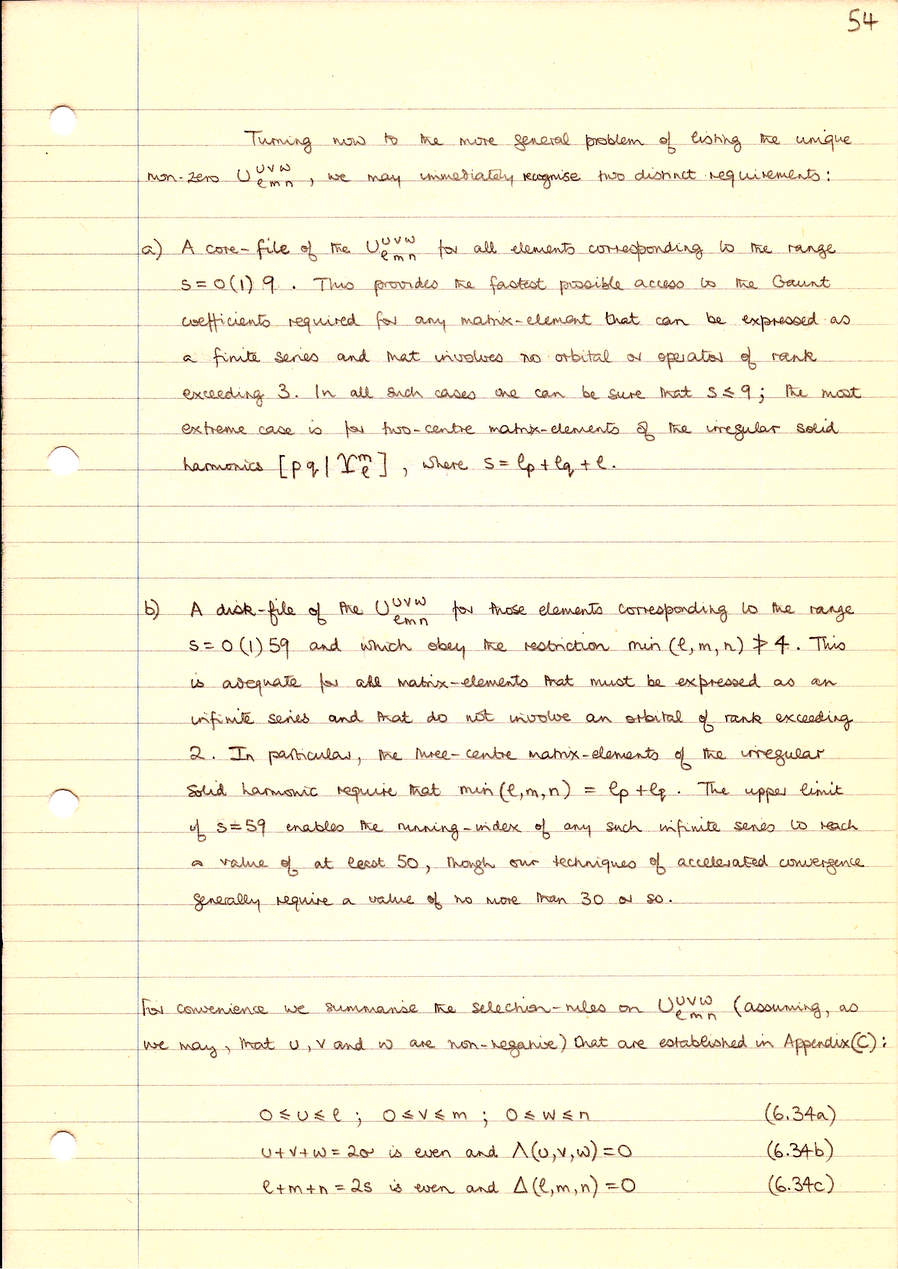 54
Turning now to the more general problem of listing the unique
non-zero U^{uvw}_{ℓmn}, we may immediately recognise two distinct requirements:
a) A core-file of the U^{uvw}_{ℓmn} for all elements corresponding to the range
s = 0(1)9. This provides the fastest possible access to the Gaunt
coefficients required for any matrix-element that can be expressed as
a finite series and that involves no orbital or operator of rank
exceeding 3. In all such cases one can be sure that s ≤ 9; the most
extreme case is for two-centre matrix-elements of the irregular solid
harmonics [pq|Y^m_ℓ], where s = ℓp + ℓq + ℓ.
b) A disk-file of the U^{uvw}_{ℓmn} for those elements corresponding to the range
s = 0(1)59 and which obey the restriction min(ℓ,m,n) ≯ 4. This
is adequate for all matrix-elements that must be expressed as an
infinite series and that do not involve an orbital of rank exceeding
2. In particular, the three-centre matrix-elements of the irregular
solid harmonic require that min(ℓ,m,n) = ℓp + ℓq. The upper limit
of s=59 enables the running-index of any such infinite series to reach
a value of at least 50, though our techniques of accelerated convergence
generally require a value of no more than 30 or so.
For convenience we summarise the selection-rules on U^{uvw}_{ℓmn} (assuming, as
we may, that u, v and w are non-negative) that are established in Appendix(C):
0≤u≤ℓ ; 0≤v≤m ; 0≤w≤n (6.34a)
u+v+w = 2σ is even and Λ(u,v,w)=0 (6.34b)
ℓ+m+n = 2s is even and Δ(ℓ,m,n)=0 (6.34c)